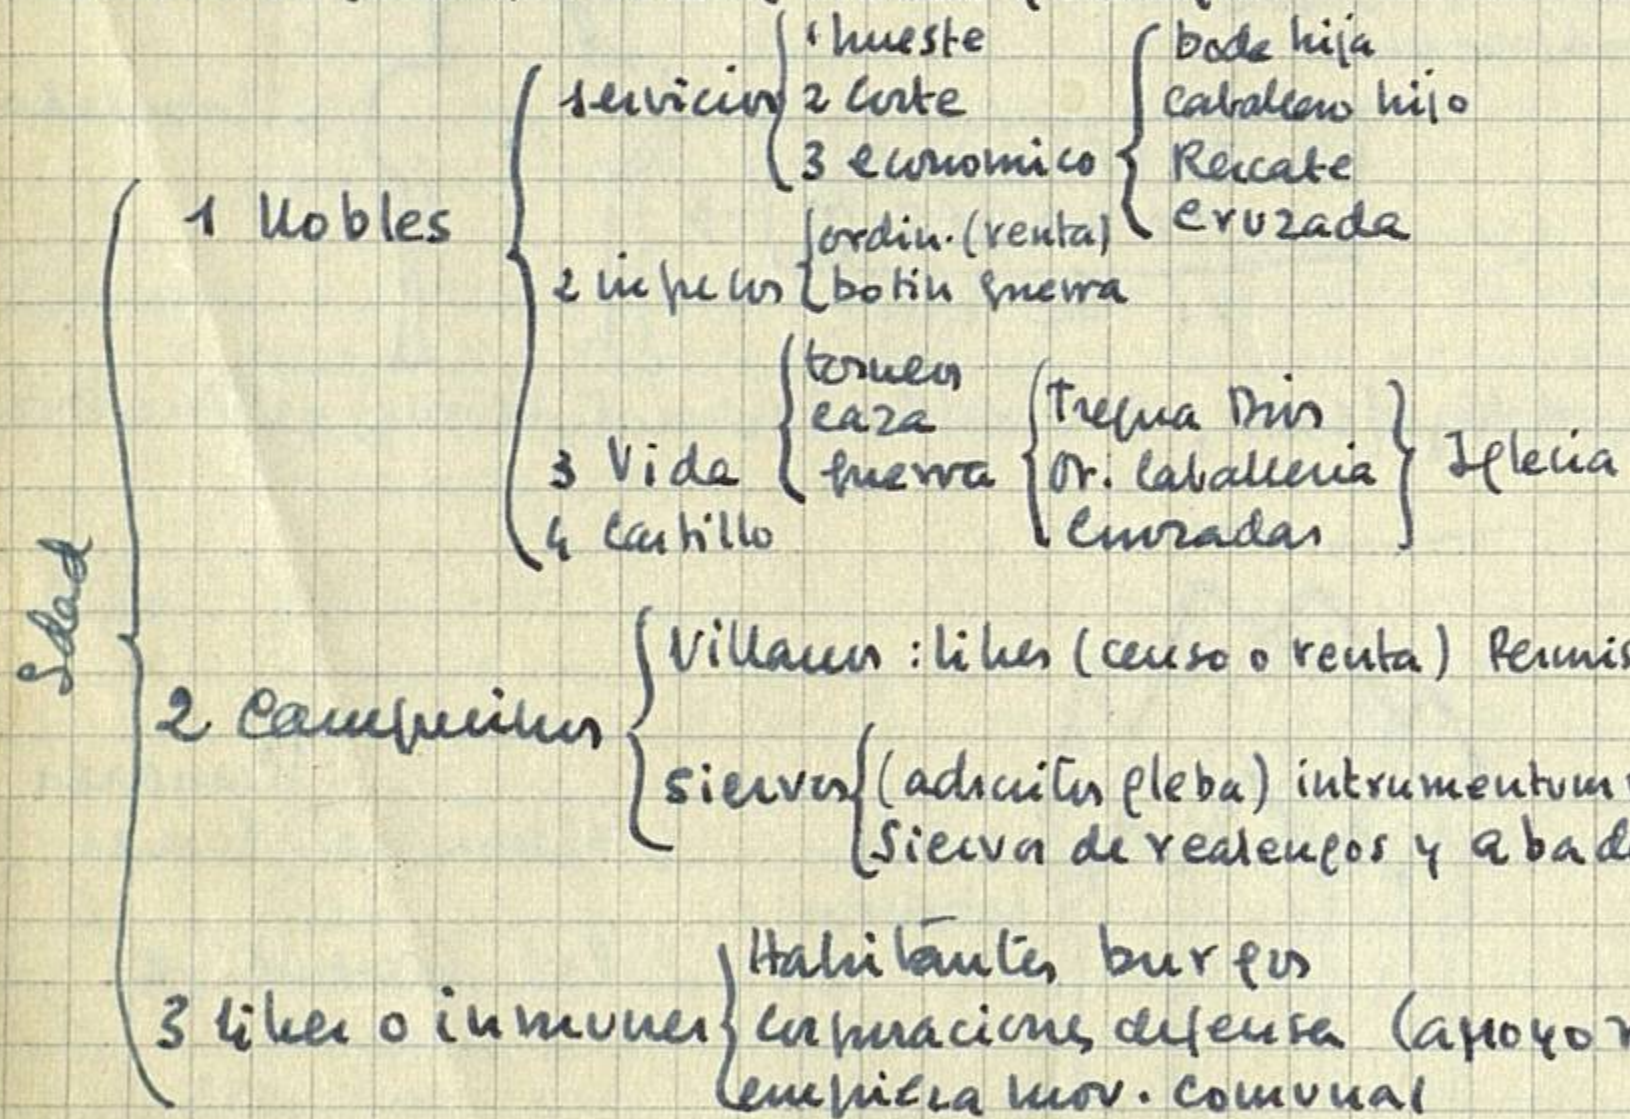 Sdad
1 Nobles
servicios
1 hueste
2 Corte
3 economico
boda hija
caballero hijo
Rescate
Cruzada
2 ingresos
ordin. (renta)
botin guerra
3 Vida
torneos
caza
guerra
Tregua Dios
Or. Caballeria
Cruzadas
Iglesia
4 Castillo
2 Campesinos
Villanos : libres (censo o renta)
Siervos
(adscritos gleba) intrumentum
Siervos de realengos y
3 libres o inmunes
Habitantes burgos
Corporaciones defensa (apoyo
empieza mov. comunal